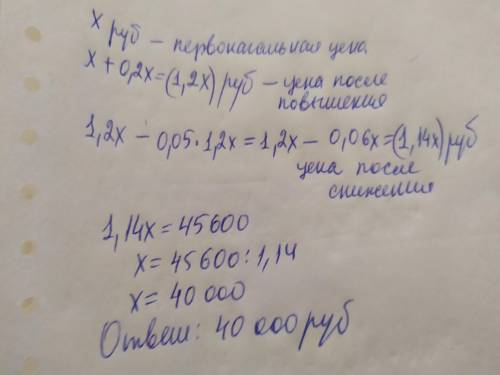 x руб – первоначальная цена.
x + 0,2x = (1,2x) руб – цена после
повышения
1,2x – 0,05 · 1,2x = 1,2x – 0,06x = (1,14x) руб
цена после
снижения
1,14x = 45600
x = 45600 : 1,14
x = 40 000
Ответ: 40 000 руб